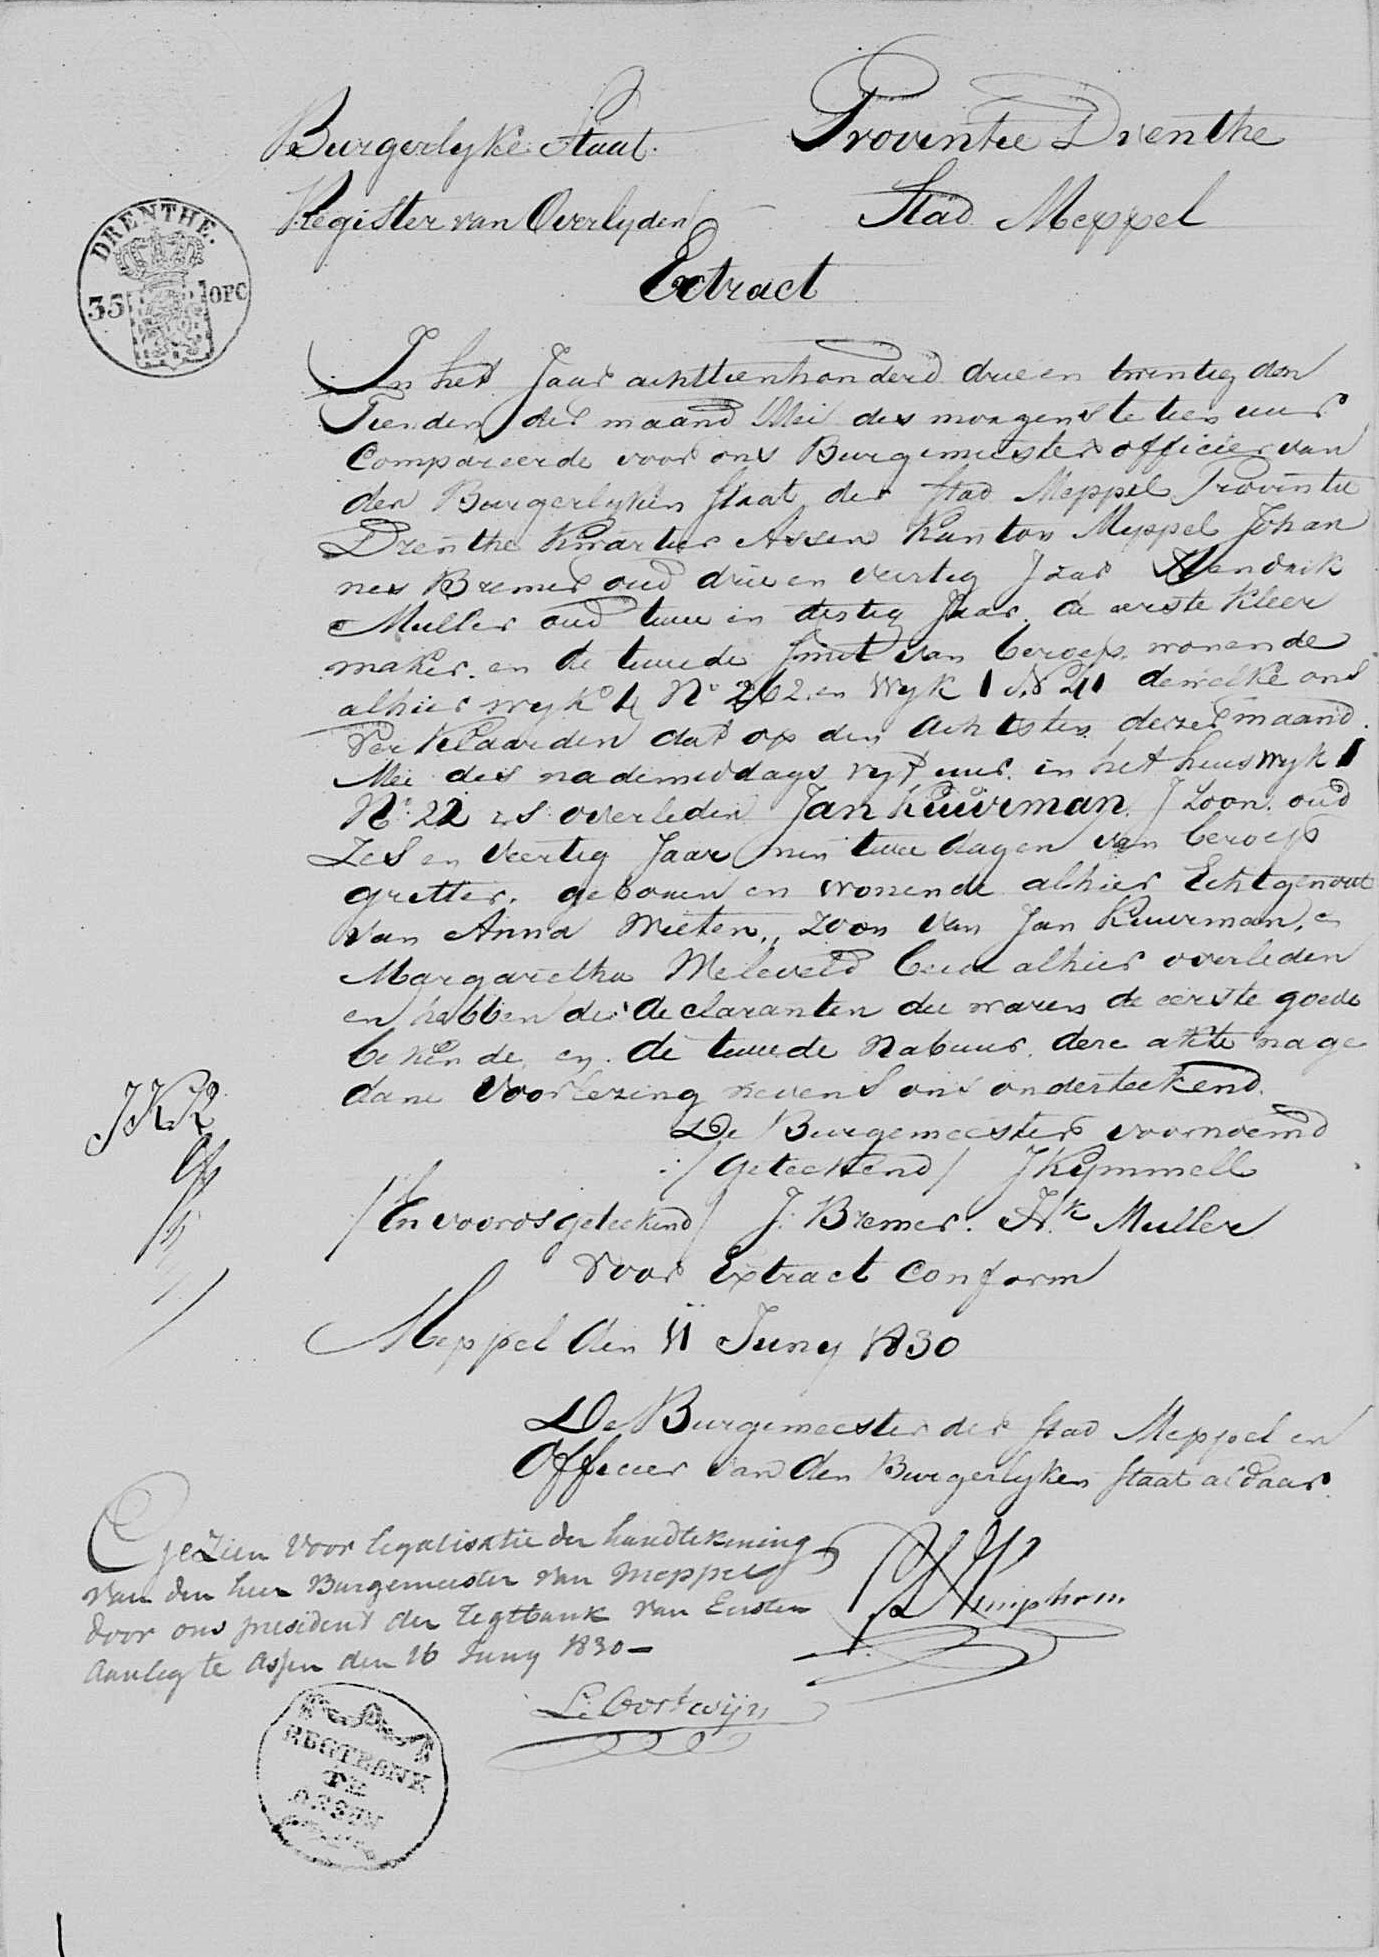 Burgerlyke Staat.
Provintie Drenthe
Register van Overlyden
Stad Meppel
DRENTHE.
35 OPC
Extract
In het Jaar achttienhonderd drie en twintig den
Tienden der maand Mei des morgens te tien uur
Compareerde voor ons Burgemeester officier van
den Burgerlyken Staat der stad Meppel Provintie
Drenthe Kwartier Assen Kanton Meppel Johan
nes Bremer oud drie en veertig Jaar Hendrik
Muller oud twee en dertig Jaar. de eerste Kleer
maker. en de tweede smit van beroep. wonende
alhier wyk 4 No 262. en Wyk 1 No 21 dewelke ons
verklaarden dat op den Achtsten dezer maand.
Mei des nademiddags vyf uur. in het huis Wyk 1
No 22 is overleden Jan Kuurman J Zoon. oud
Zes en Veertig Jaar min twee dagen van beroep
gretter. geboren en wonende alhier Echtgenoot
van Anna Mieten., zoon van Jan Kuurman, en
Margaretha Meleveld beide alhier overleden
en hebben de declaranten die waren de eerste goede
bekende, en. de tweede Nabuur. deze akte na ge
dane Voorlezing nevens ons onderteekend.
De Burgemeester voornoemd
/Geteekend/ J Kymmell
/En voorts geteekend/ J. Bremer. Hk Muller
Voor Extract Conform
Meppel den 11 Juny 1830
De Burgemeester der stad Meppel en
Officier van den Burgerlyken staat aldaar.
Gezien voor legalisatie der handtekening
van den heer Burgemeester van Meppel
door ons president der regtbank van Eersten
Aanleg te Assen den 16 Juny 1830 –
L. Oostwijn
REGTBANK
TE
ASSEN